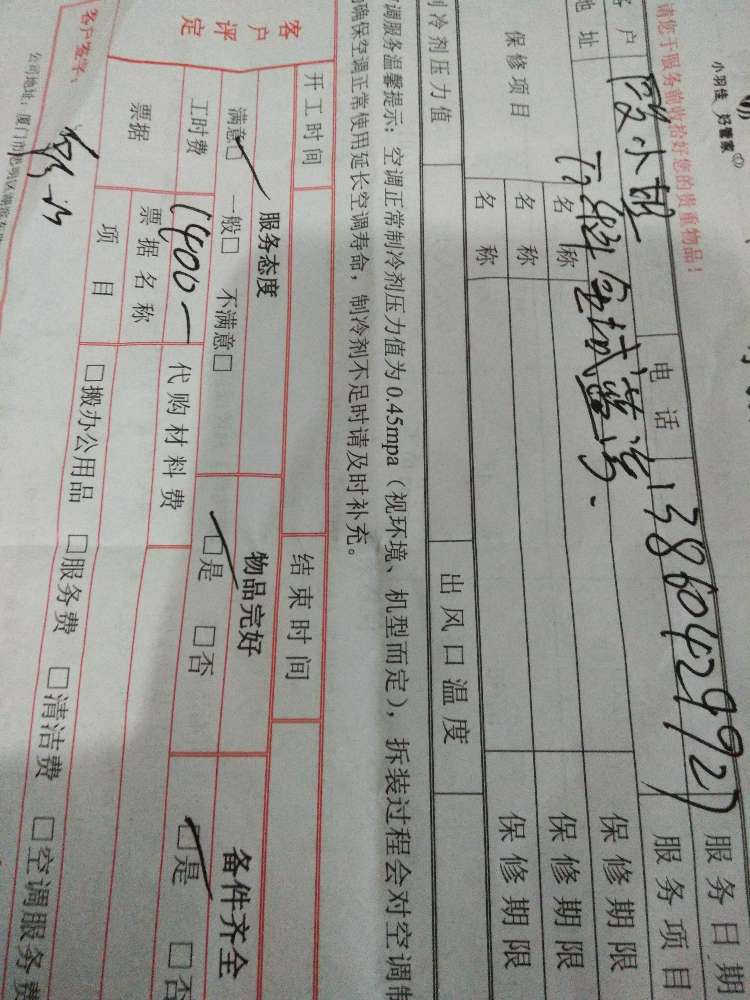 小羽佳 好管家
请您于服务前收拾好您的贵重物品！
户 段小姐 电话 13860429927 服务日期
地址 万科金域蓝湾 服务项目
保修项目 名称 保修期限
名称 保修期限
名称 保修期限
制冷剂压力值 出风口温度
调服务温馨提示：空调正常制冷剂压力值为0.45mpa（视环境、机型而定），拆装过程会对空调制
确保空调正常使用延长空调寿命，制冷剂不足时请及时补充。
开工时间 结束时间
客户评定 服务态度 物品完好 备件齐全
满意□ 一般□ 不满意□ □是 □否 □是 □否
工时费 1400 代购材料费
票据 票据名称
项目 □搬办公用品 □服务费 □清洁费 □空调服务费
客户签字：
公司地址：厦门市思明区湖滨